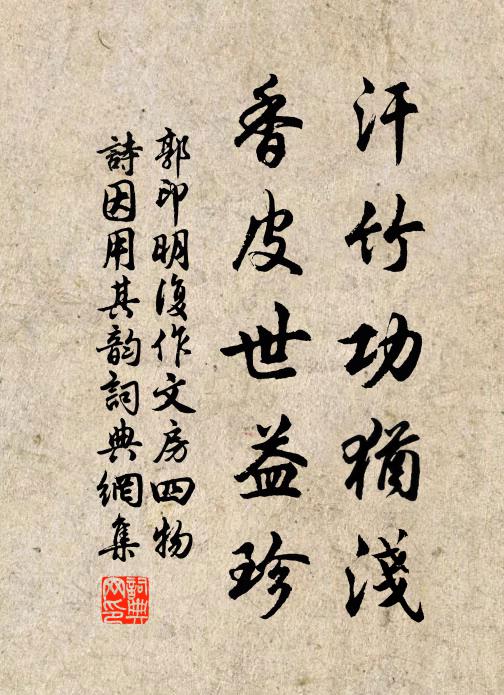 汗竹功猶淺
香皮世益珍
郭印明復作文房四物
詩因用其韵詞典網集
詞典網印